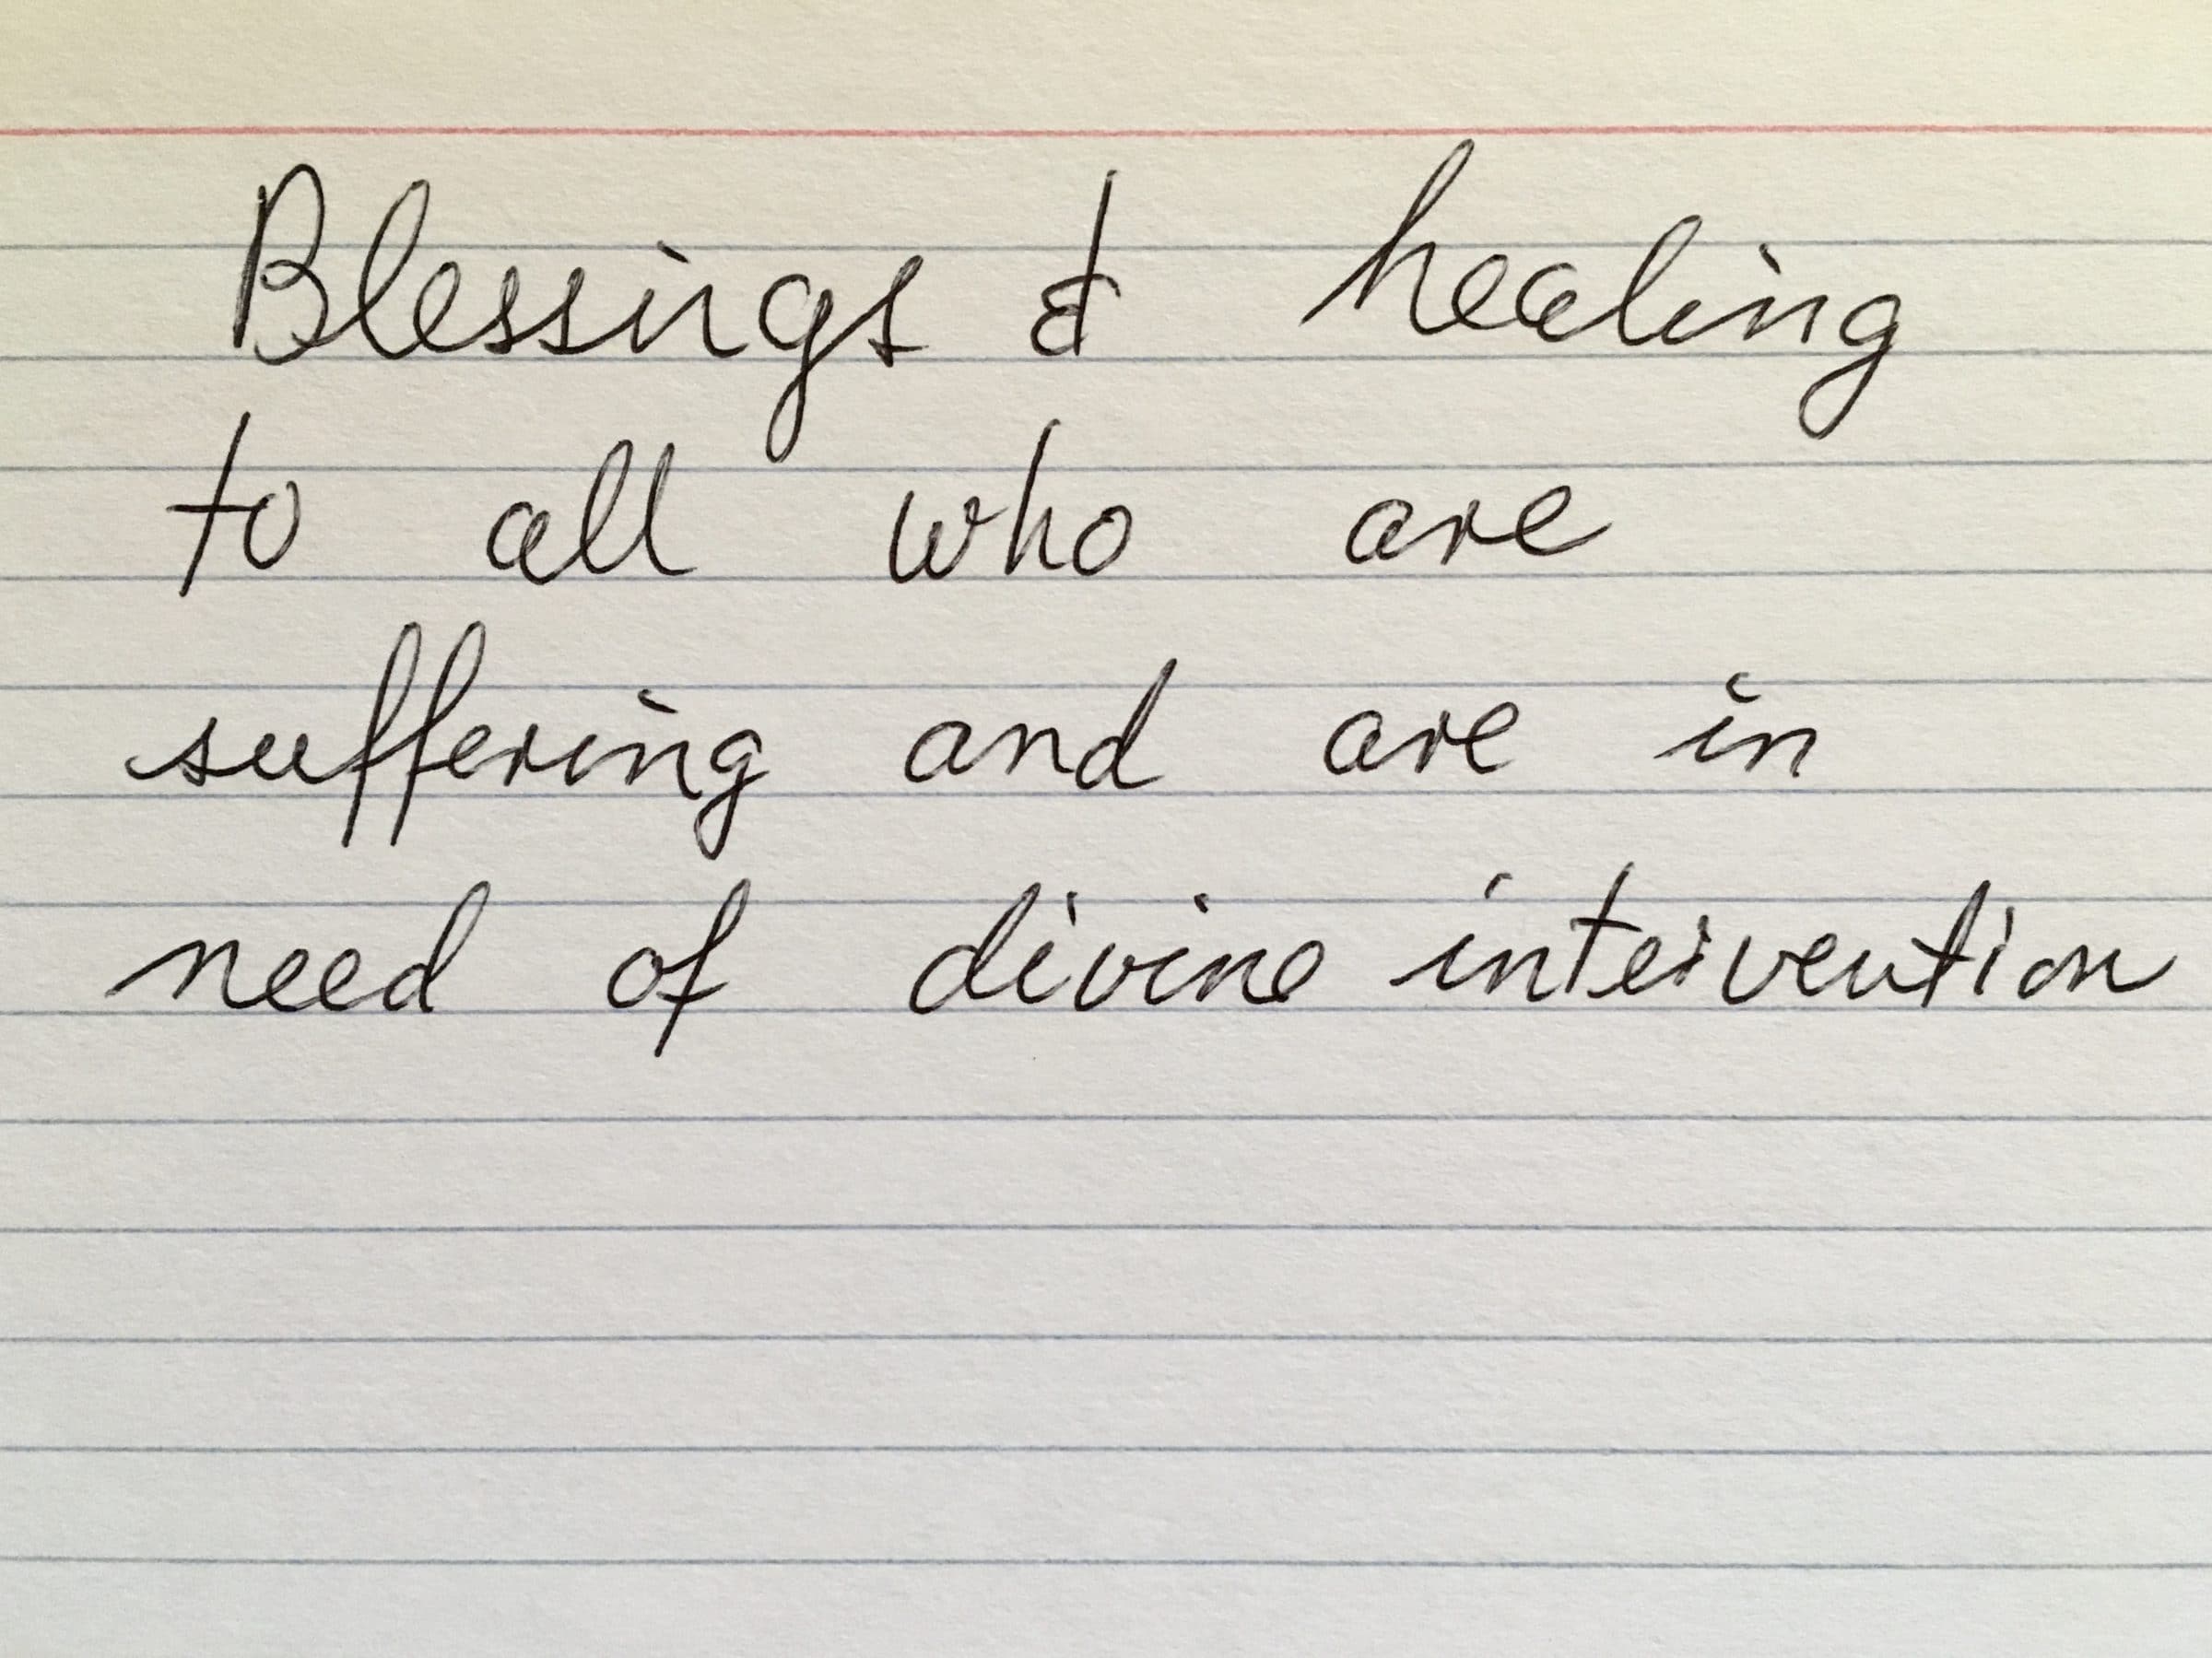 Blessings & healing
to all who are
suffering and are in
need of divine intervention